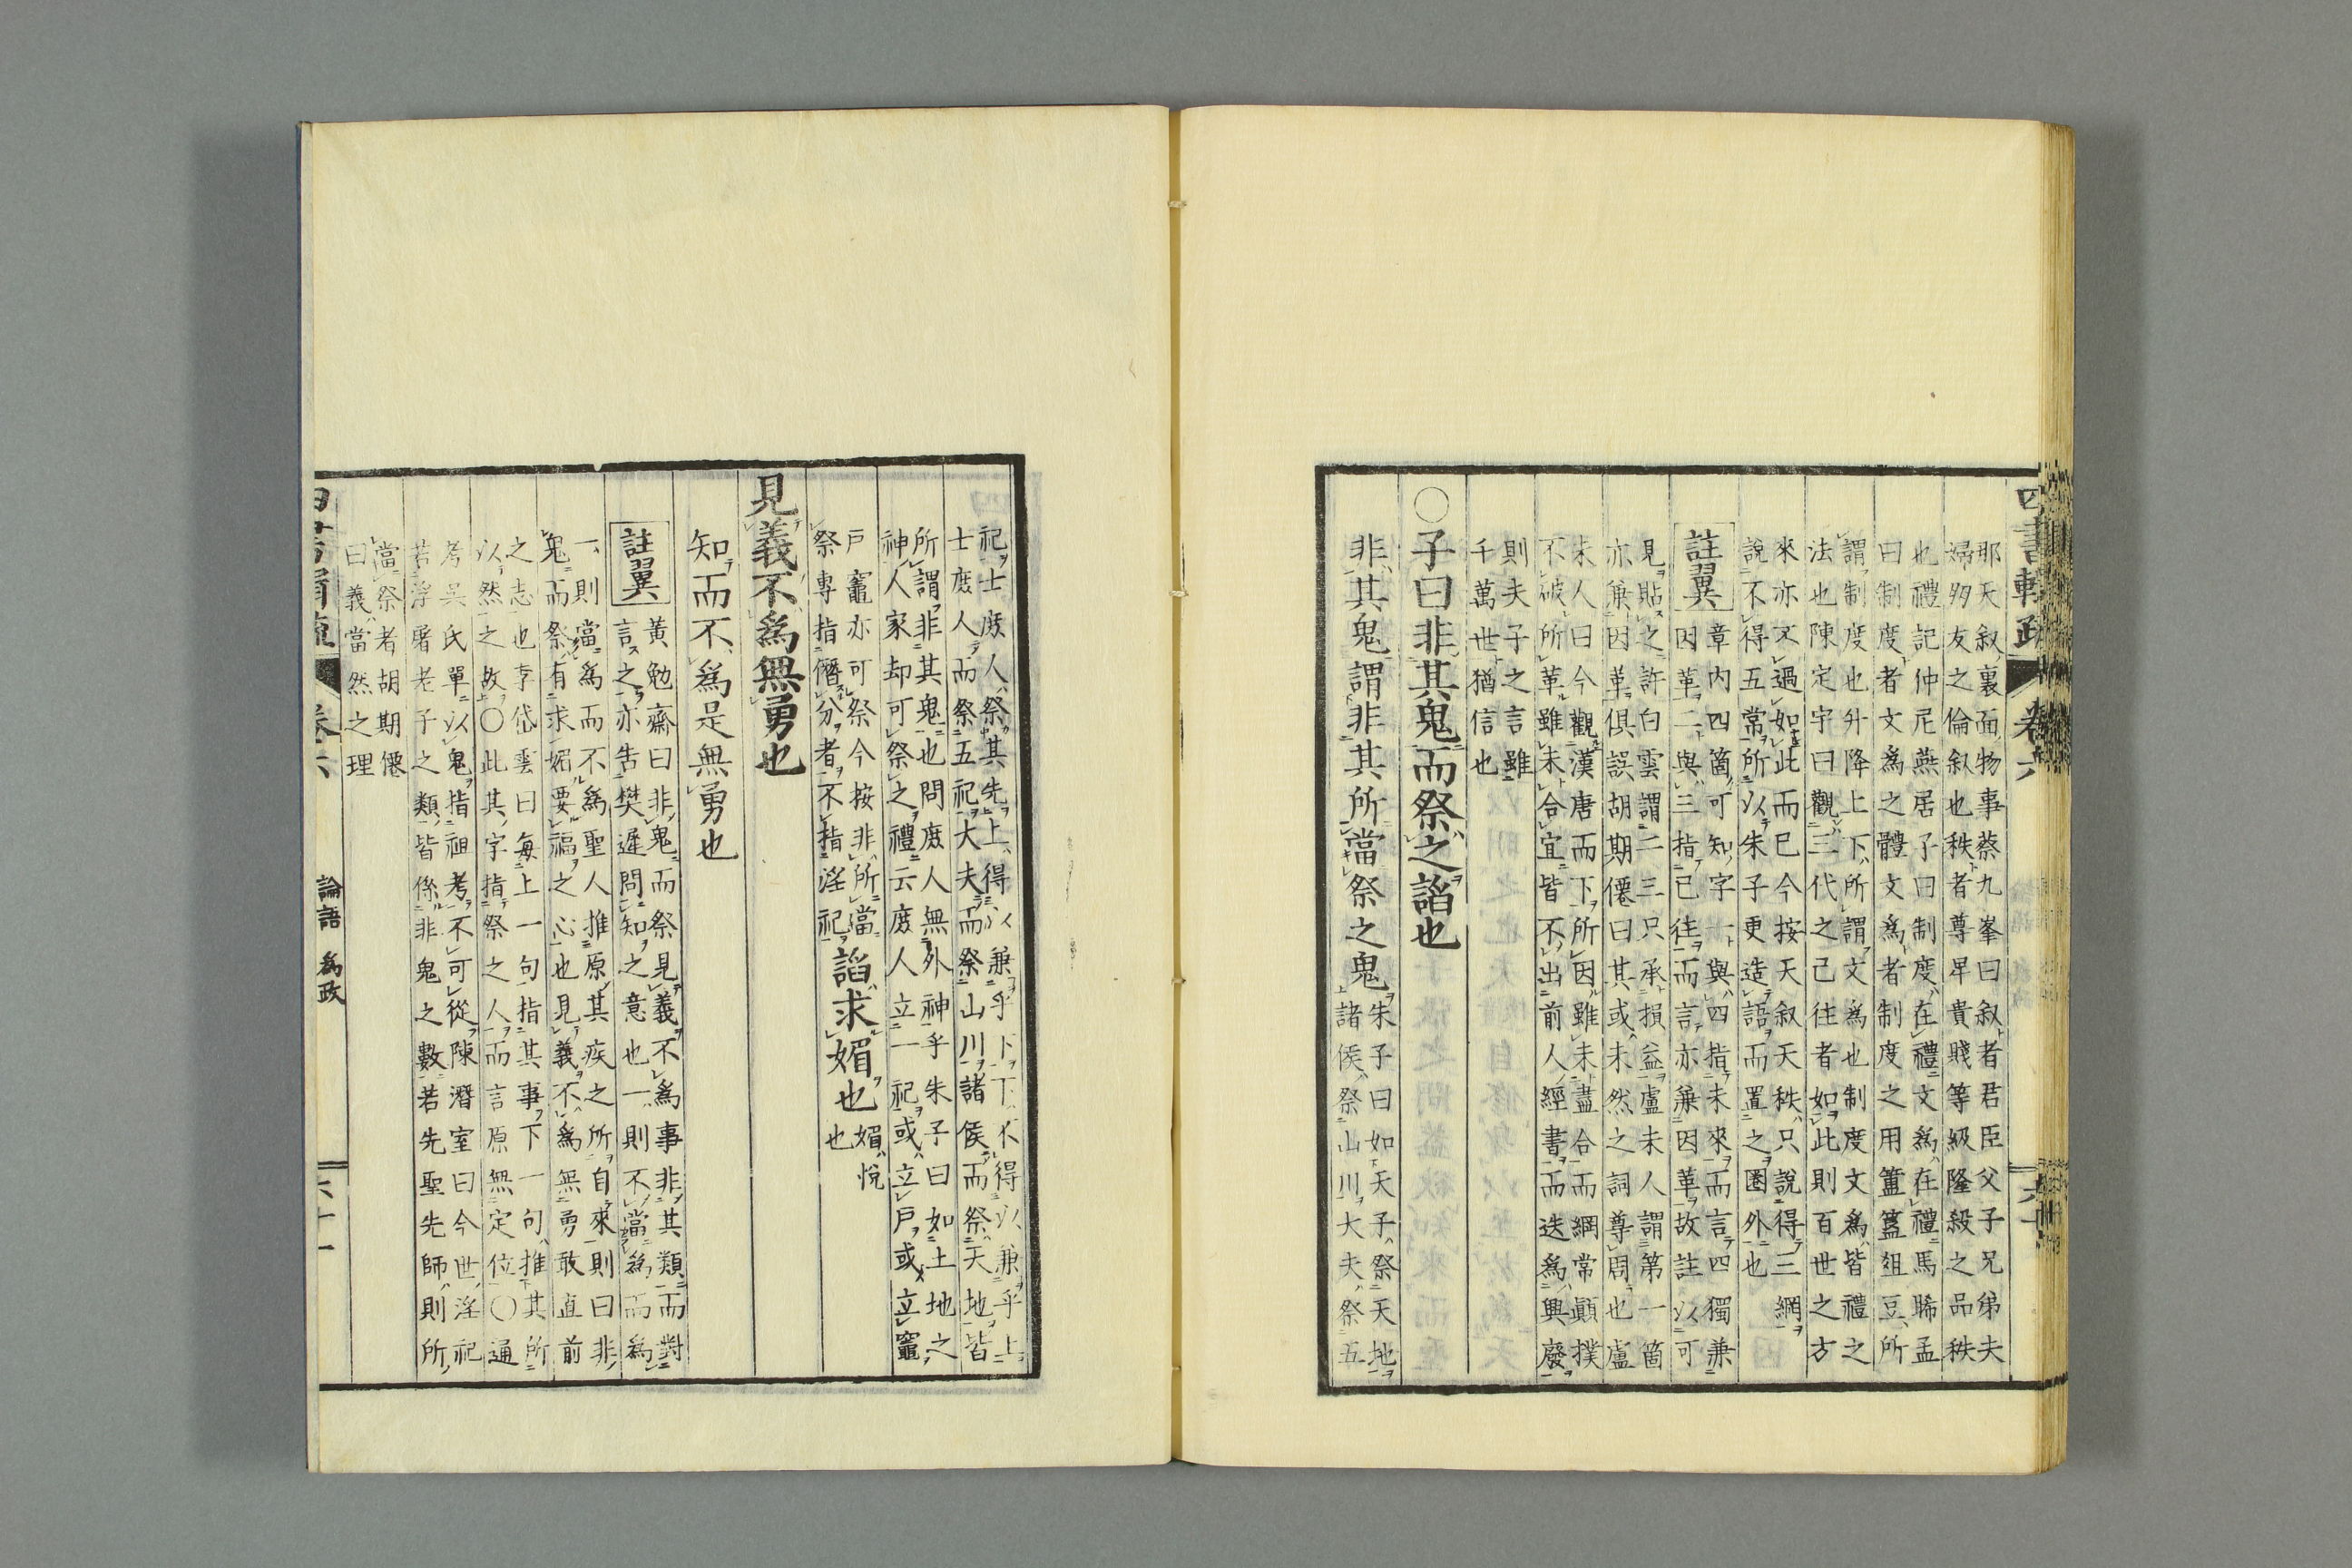 四書輯疏 卷六
那天叙裏面物事蔡九峯曰叙者君臣父子兄弟夫
婦朋友之倫叙也秩者尊卑貴賤等級隆殺之品秩
也禮記仲尼燕居子曰制度在禮文爲在禮馬睎孟
曰制度者文爲之體文爲者制度之用簠簋俎豆所
謂制度也升降上下所謂文爲也制度文爲皆禮之
法也陳定宇曰觀三代之已往者如此則百世之方
來亦不過如此而已今按天叙天秩只說得三綱
說不得五常所以朱子更造語而置之圏外也
註翼
章内四箇可知字一與四指未來而言四獨兼
因革二與三指已往而言亦兼因革故註以可
見貼之許白雲謂二三只承損益盧未人謂第一箇
亦兼因革俱誤胡期僊曰其或未然之詞尊周也盧
未人曰今觀漢唐而下所因雖未盡合而綱常顚撲
不破所革雖未合宜皆不出前人經書而迭爲興廢
則夫子之言雖
千萬世猶信也
○子曰非其鬼而祭之諂也
非其鬼謂非其所當祭之鬼
朱子曰如天子祭天地
諸侯祭山川大夫祭五
祀士庶人祭其先上得以兼乎下下不得以兼乎上
士庶人而祭五祀大夫而祭山川諸侯而祭天地皆
所謂非其鬼也問庶人無外神乎朱子曰如土地之
神人家却可祭之禮云庶人立一祀或立戸或立竈
戸竈亦可祭今按非所當
祭專指僭分者不指淫祀
諂求媚也
媚悅
也
見義不爲無勇也
知而不爲是無勇也
註翼
黃勉齋曰非鬼而祭見義不爲事非其類而對
言之亦告樊遲問知之意也一則不當爲而爲
一則當爲而不爲聖人推原其疾之所自來則曰非
鬼而祭有求媚要福之心也見義不爲無勇敢直前
之志也李岱雲曰每上一句指其事下一句推其所
以然之故○此其字指祭之人而言原無定位○通
考吳氏單以鬼指祖考不可從陳潛室曰今世淫祀
若浮屠老子之類皆係非鬼之數若先聖先師則所
當祭者胡期僊
曰義當然之理
論語 爲政